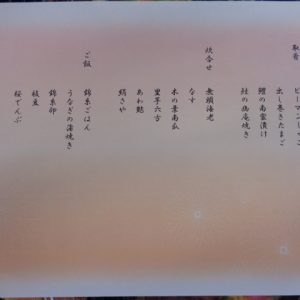 取肴
ピーマンじゃこ
出し巻きたまご
鱧の南蛮漬け
鮭の幽庵焼き
炊合せ
無頭海老
なす
木の葉南瓜
里芋六方
あわ麩
絹さや
ご飯
錦糸ごはん
うなぎの蒲焼き
錦糸卵
枝豆
桜でんぶ